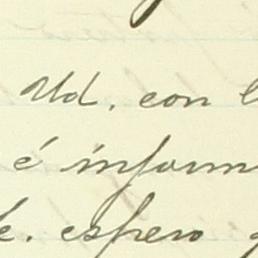 Ud. con l
é inform
é. espero g